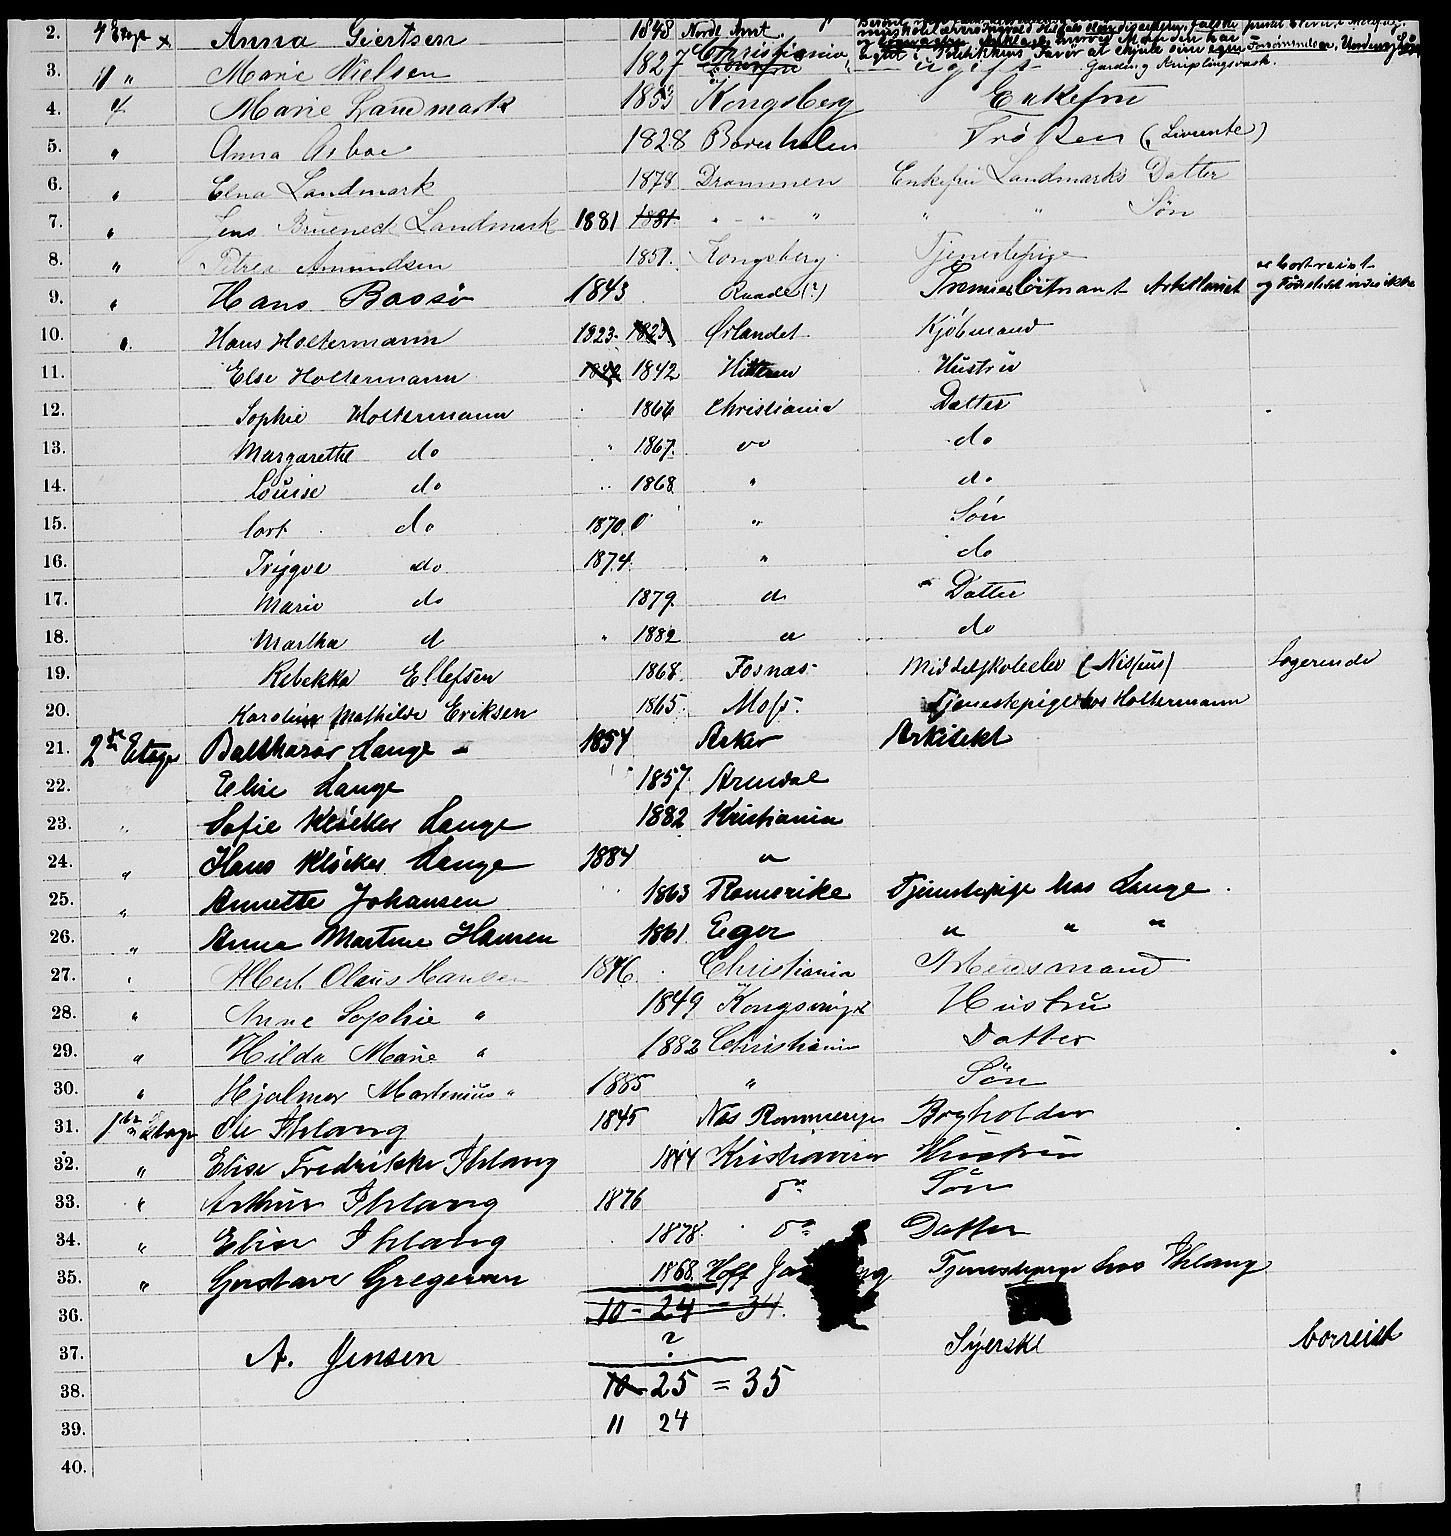 2. 4 Etage x Anna Giertsen 1848 Nordl. Amt
3. " " Marie Nielsen 1827 Christiania ugift
4. " Marie Landmark 1853 Kongsberg Enkefru
5. " Anna Asboe 1828 Bornholm Frøken (Livrente)
6. " Elna Landmark 1878 Drammen Enkefru Landmarks Datter
7. " Jens Landmark 1881 1881 " " " " " Søn
8. " Petrea Amundsen 1851. Kongsberg. Tjenestepige
9. " Hans Bassø 1843 Raade (?) Premierløitnant Arkitekt er bortreist og Fødestedet vides ikke
10. " Hans Holtermann 1823. 1823 Ørlandet Kjøbmand
11. Else Holtermann 1842 1842 Hitteren Hustru
12. Sophie Holtermann 1866 Christiania Datter
13. Margarethe do " 1867. do do
14. Louise do " 1868 " do
15. Carl do 1870. " Søn
16. Trygve do 1874. " do
17. Marie do 1879 do Datter
18. Martha d " 1882 " do
19. Rebekka Ellefsen 1868. Fosnæs Middelskoleelev (Nissens) Logerende
20. Karolin Mathilde Eriksen 1865. Moss. Tjenestepige hos Holtermann
21. 2den Etage Balthazar Lange " 1854 Aker Arkitekt
22. " Elise Lange " 1857. Arendal
23. " Sofie Kløcker Lange 1882 Kristiania
24. " Hans Kløcker Lange 1884 "
25. " Annette Johansen 1863 Romerike Tjenestepige hos Lange.
26. " Anna Martine Hansen 1861. Eger " " "
27. " Albert Olaus Hansen 1846. Christiania Arbeidsmand
28. " Anne Sophie " 1849 Kongsvinger Hustru
29. " Hilda Marie " 1882 Christiania Datter
30. " Hjalmar Martinius " 1885 " Søn
31. 1ste Etage Ole Ihlang 1845 Næs Rommerige Bryholder
32. " Elise Fredrikke Ihlang 1844 Kristiania Hustru
33. " Arthur Ihlang 1876 do Søn
34. " Elise Ihlang 1878. do Datter
35. " Gustava Gregersen 1868. Hoff Tjenestepige hos Ihlang
36. 10 - 24 = 34.
37. A. Jensen ? Syerske borreist
38. 10 - 25 = 35
39. 11 24
40.